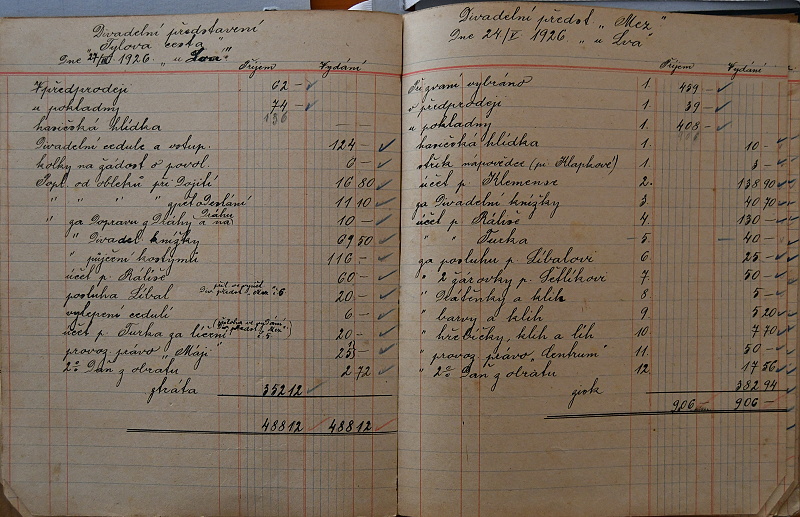 Divadelní představení
"Tylova cesta"
Dne 1926. "u Lva"
Příjem Vydání
V předprodeji 62 –
u pokladny 74 –
136
hasičská hlídka – –
Divadelní cedule a vstup. 124 –
kolky na žádost o povol. 6 –
Popl. od obleků při Dojití 16 80
" " " " zpět Odeslání 11 10
" za Dopravu z Dráhy a na Dráhu 10 –
" Divadel. knížky 69 50
" půjčení kostymů 116 –
účet p. Rálíše 60 –
posluha Líbal 20 –
vylepení cedulí 6 –
účet p. Turka za líčení 20 –
provoz. právo "Máji" 25 –
2% Daň z obratu 2 72
ztráta 352 12
488 12 488 12
Divadelní předst. "Mez"
Dne 24/V. 1926 "u Lva"
Příjem Vydání
Pozvaní vybráno 1. 459 –
v předprodeji 1. 39 –
u pokladny 1. 408 –
hasičská hlídka 1. 10 –
nápovědce (pí. Klapkové) 1. 3 –
účet p. Klemense 2. 138 90
za Divadelní knížky 3. 40 70
účet p. Rálíše 4. 130 –
" " Turka – 5. – 40 –
za posluhu p. Líbalovi 6 25 –
" 2 žárovky p. Šetlíkovi 7. 50 –
" a klih 8 5 –
" barvy a klih 9. 5 20
" hřebíčky, klih a líh 10. 7 70
" provoz. právo "Centrum" 11. 50 –
" 2% Daň z obratu 12. 17 56
zisk 382 94
906 – 906 –